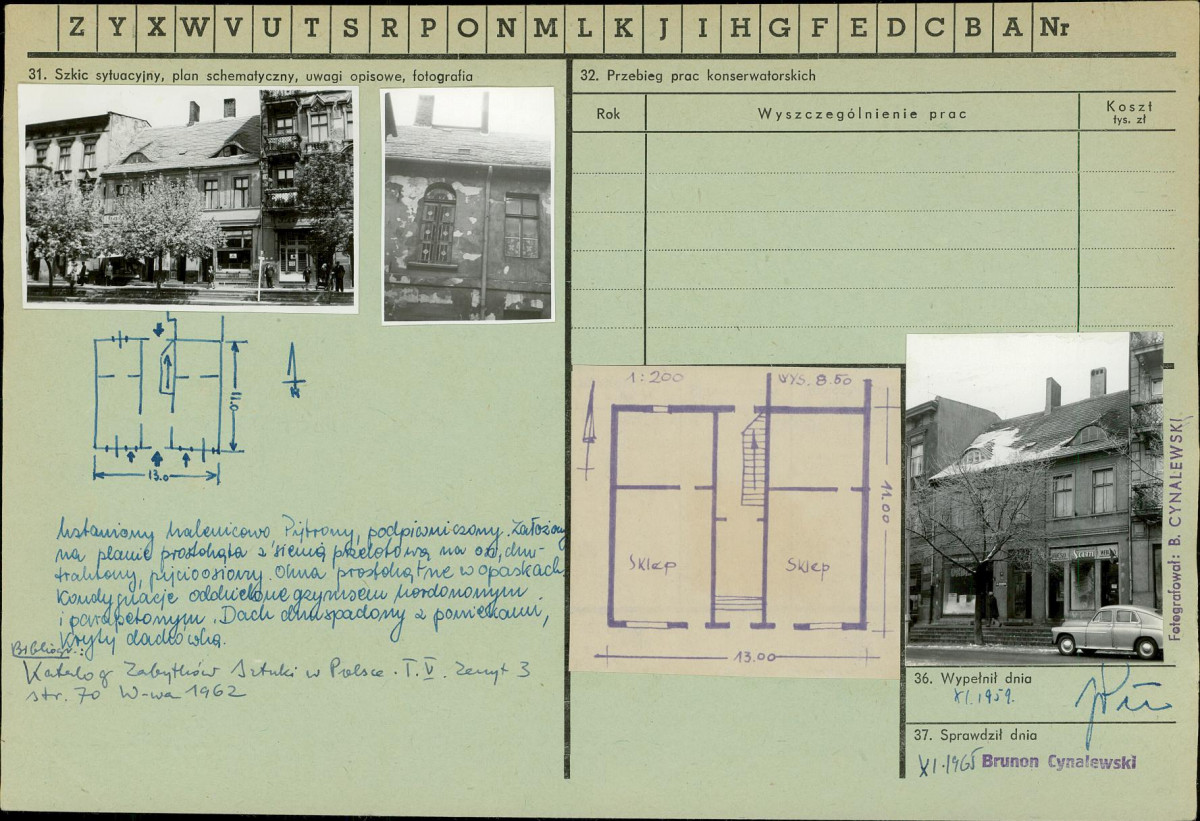 Z Y X W V U T S R P O N M L K J I H G F E D C B A Nr
31. Szkic sytuacyjny, plan schematyczny, uwagi opisowe, fotografia
13.0
11.0
Ustawiony kalenicowo, Piętrowy, podpiwniczony. Założony
na planie prostokąta z sienią przelotową na osi, dwu-
traktowy, pięcioosiowy. Okna prostokątne w opaskach,
Kondygnacje oddzielone gzymsem kordonowym
i parapetowym. Dach dwuspadowy z powiekami,
Kryty dachówką.
Bibliogr.:
Katalog Zabytków Sztuki w Polsce. T. V. Zeszyt 3
str. 70 W-wa 1962
32. Przebieg prac konserwatorskich
Rok
Wyszczególnienie prac
Koszt
tys. zł
1:200
WYS. 8.50
Sklep
Sklep
11.00
13.00
Fotografował: B. CYNALEWSKI
36. Wypełnił dnia
XI.1959.
37. Sprawdził dnia
XI.1965 Brunon Cynalewski